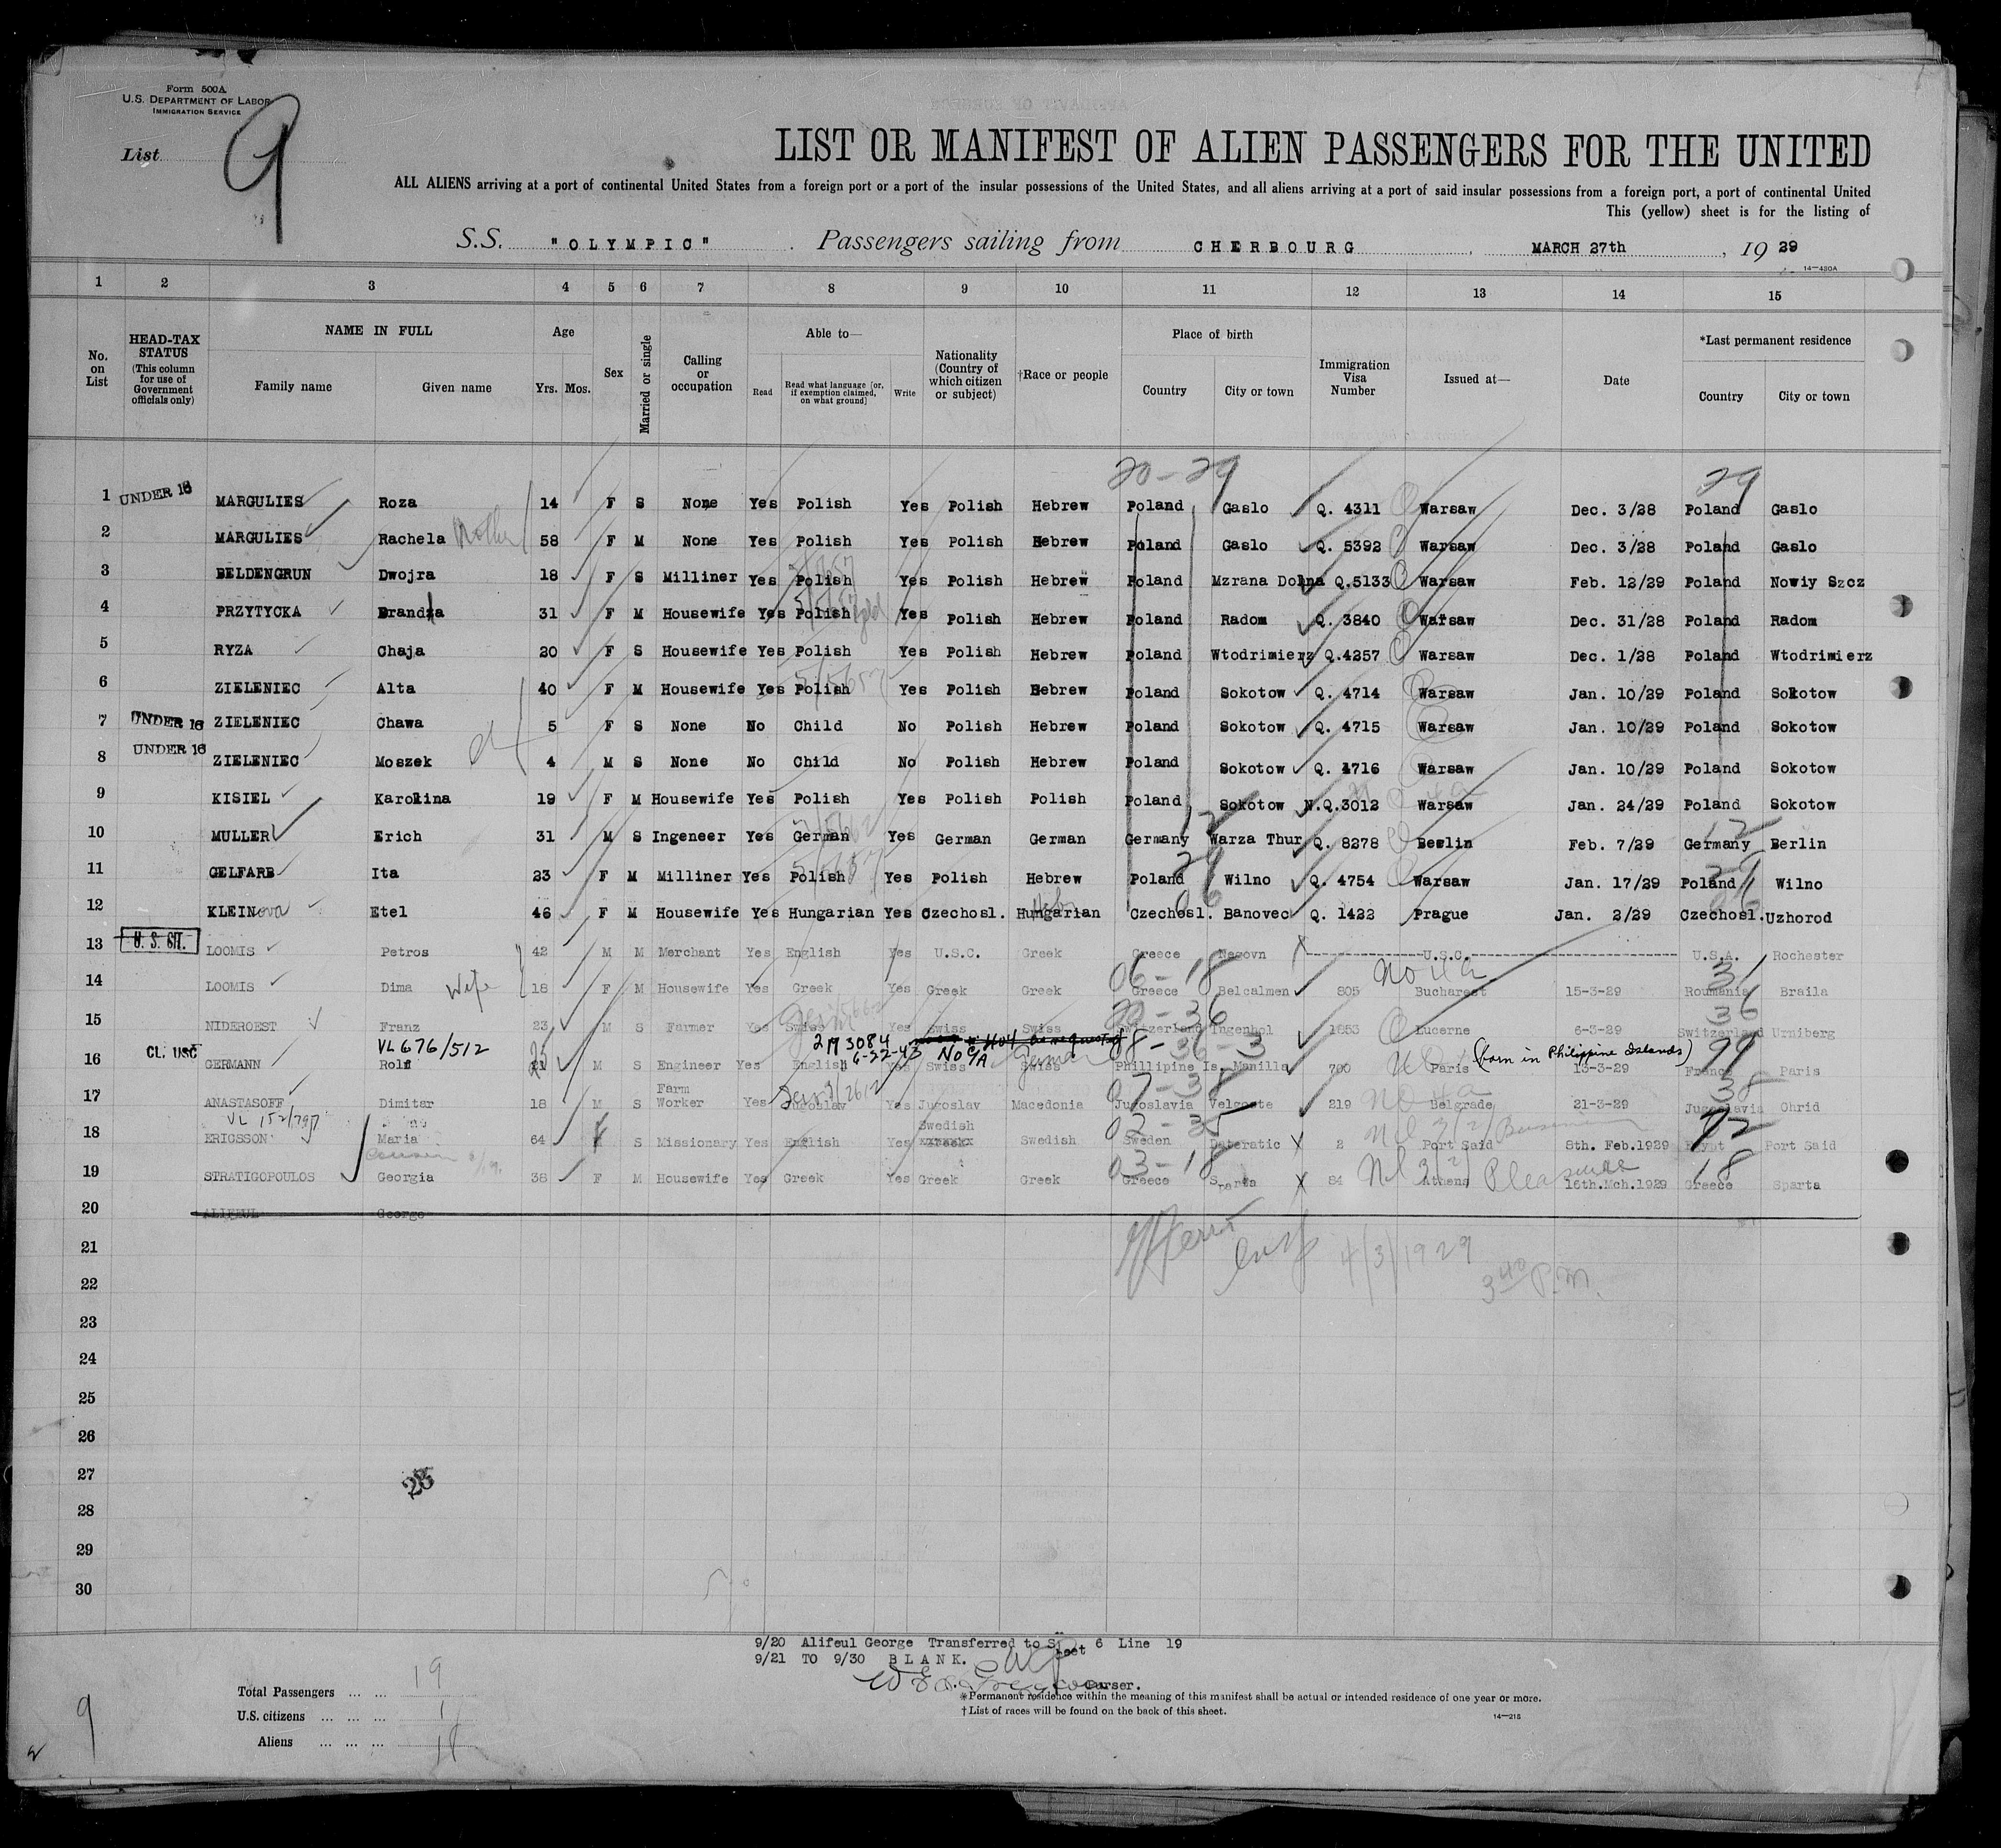 Form 500A
U.S. DEPARTMENT OF LABOR
IMMIGRATION SERVICE
List 9
LIST OR MANIFEST OF ALIEN PASSENGERS FOR THE UNITED
ALL ALIENS arriving at a port of continental United States from a foreign port or a port of the insular possessions of the United States, and all aliens arriving at a port of said insular possessions from a foreign port, a port of continental United
This (yellow) sheet is for the listing of
S.S. "OLYMPIC" . Passengers sailing from CHERBOURG , MARCH 27th , 19 29
14—430A
1 2 3 4 5 6 7 8 9 10 11 12 13 14 15
No. on List
HEAD-TAX STATUS (This column for use of Government officials only)
NAME IN FULL Family name Given name
Age Yrs. Mos.
Sex
Married or single
Calling or occupation
Able to— Read Read what language [or, if exemption claimed, on what ground] Write
Nationality (Country of which citizen or subject)
†Race or people
Place of birth Country City or town
Immigration Visa Number
Issued at—
Date
*Last permanent residence Country City or town
20-29 29
1 UNDER 16 MARGULIES Roza 14 F S None Yes Polish Yes Polish Hebrew Poland Gaslo Q. 4311 Warsaw Dec. 3/28 Poland Gaslo
2 MARGULIES Rachela Mother 58 F M None Yes Polish Yes Polish Hebrew Poland Gaslo Q. 5392 Warsaw Dec. 3/28 Poland Gaslo
3 BELDENGRUN Dwojra 18 F S Milliner Yes Polish Yes Polish Hebrew Poland Mzrana Dolna Q.5133 Warsaw Feb. 12/29 Poland Nowiy Szcz
4 PRZYTYCKA Brandza 31 F M Housewife Yes Polish Yes Polish Hebrew Poland Radom Q. 3840 Warsaw Dec. 31/28 Poland Radom
5 RYZA Chaja 20 F S Housewife Yes Polish Yes Polish Hebrew Poland Wtodrimierz Q.4257 Warsaw Dec. 1/28 Poland Wtodrimierz
6 ZIELENIEC Alta 40 F M Housewife Yes Polish Yes Polish Hebrew Poland Sokotow Q. 4714 Warsaw Jan. 10/29 Poland Sokotow
7 UNDER 16 ZIELENIEC Chawa 5 F S None No Child No Polish Hebrew Poland Sokotow Q. 4715 Warsaw Jan. 10/29 Poland Sokotow
8 UNDER 16 ZIELENIEC Moszek 4 M S None No Child No Polish Hebrew Poland Sokotow Q. 4716 Warsaw Jan. 10/29 Poland Sokotow
9 KISIEL Karolina 19 F M Housewife Yes Polish Yes Polish Polish Poland Sokotow N.Q.3012 Warsaw Jan. 24/29 Poland Sokotow
10 MULLER Erich 31 M S Ingeneer Yes German Yes German German Germany Warza Thur Q. 8278 Berlin Feb. 7/29 Germany Berlin
11 GELFARB Ita 23 F M Milliner Yes Polish Yes Polish Hebrew Poland Wilno Q. 4754 Warsaw Jan. 17/29 Poland Wilno
12 KLEINova Etel 46 F M Housewife Yes Hungarian Yes Czechosl. Hungarian Czechosl. Banovec Q. 1422 Prague Jan. 2/29 Czechosl. Uzhorod
13 U. S. CIT. LOOMIS Petros 42 M M Merchant Yes English Yes U.S.C. Greek Greece Negovn U.S.C. U.S.A. Rochester
14 LOOMIS Dima Wife 18 F M Housewife Yes Greek Yes Greek Greek 06-18 Greece Belcalmen 805 Bucharest 15-3-29 Roumania Braila
15 NIDEROEST Franz 23 M S Farmer Yes Swiss Yes Swiss Swiss Switzerland Ingenhol 1653 Lucerne 6-3-29 Switzerland Urniberg
VL 676/512 2M 3084 6-22-43 No C/A 08-36-3 (born in Philippine Islands) 99
16 CL. USC GERMANN Rolf 21 M S Engineer Yes English Yes Swiss Swiss Phillipine Is. Manilla 700 Paris 13-3-29 France Paris
17 ANASTASOFF Dimitar 18 M S Farm Worker Yes Jugoslav Yes Jugoslav Macedonia Jugoslavia Velgoste 219 Belgrade 21-3-29 Jugoslavia Ohrid
VL 152/797
18 ERICSSON Maria 64 S Missionary Yes English Yes Swedish Swedish Sweden 2 Port Said 8th. Feb.1929 Egypt Port Said
19 STRATIGOPOULOS Georgia 38 F M Housewife Yes Greek Yes Greek Greek 03-18 Greece Sparta 84 Athens Pleasure 16th.Mch.1929 Greece Sparta
20 ALIFEUL George
21
22 4/3/1929
3 40 P.M.
23
24
25
26
27 25
28
29
30
9/20 Alifeul George Transferred to Sheet 6 Line 19
9/21 TO 9/30 BLANK.
Purser.
Total Passengers 19
U.S. citizens 1
Aliens 18
*Permanent residence within the meaning of this manifest shall be actual or intended residence of one year or more.
†List of races will be found on the back of this sheet.
14—218
9